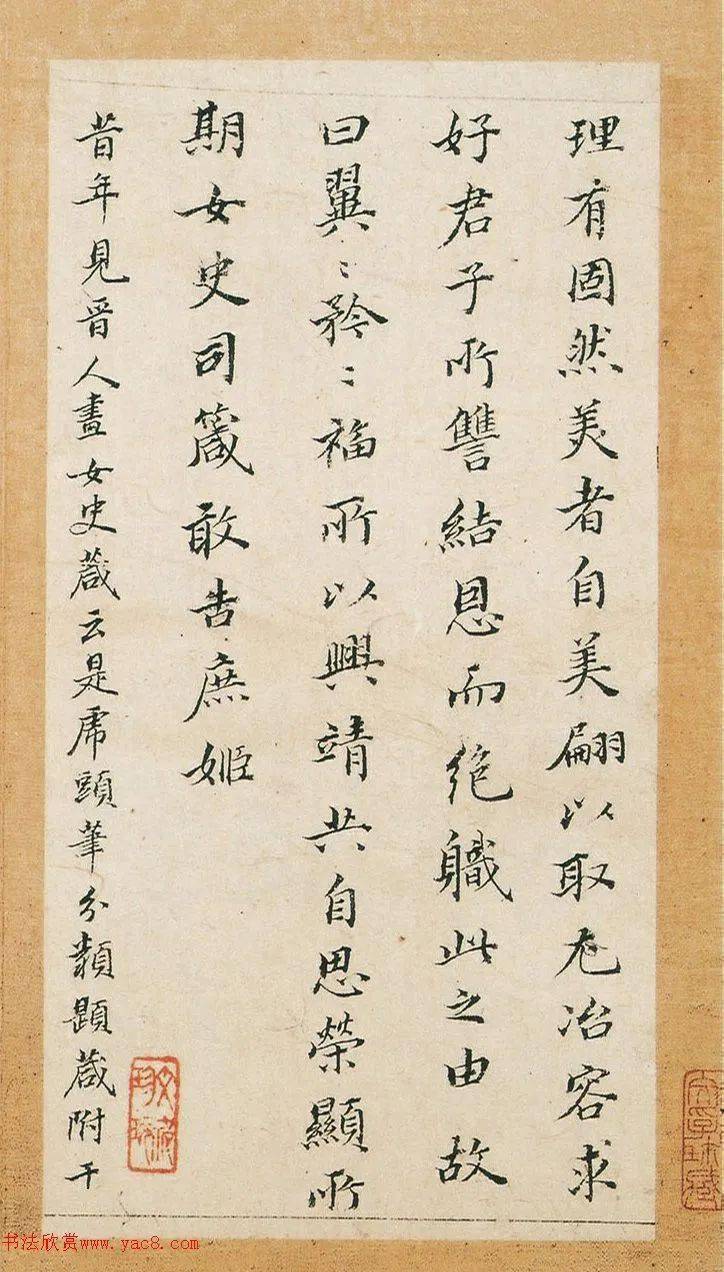 理有固然美者自美翩以取尤冶容求
好君子所讐結恩而絶職此之由故
曰翼〻矜〻福所以興靖共自思榮顯所
期女史司箴敢告庶姬
昔年見晋人畫女史箴云是虎頭筆分類題箴附于
书法欣赏www.yac8.com